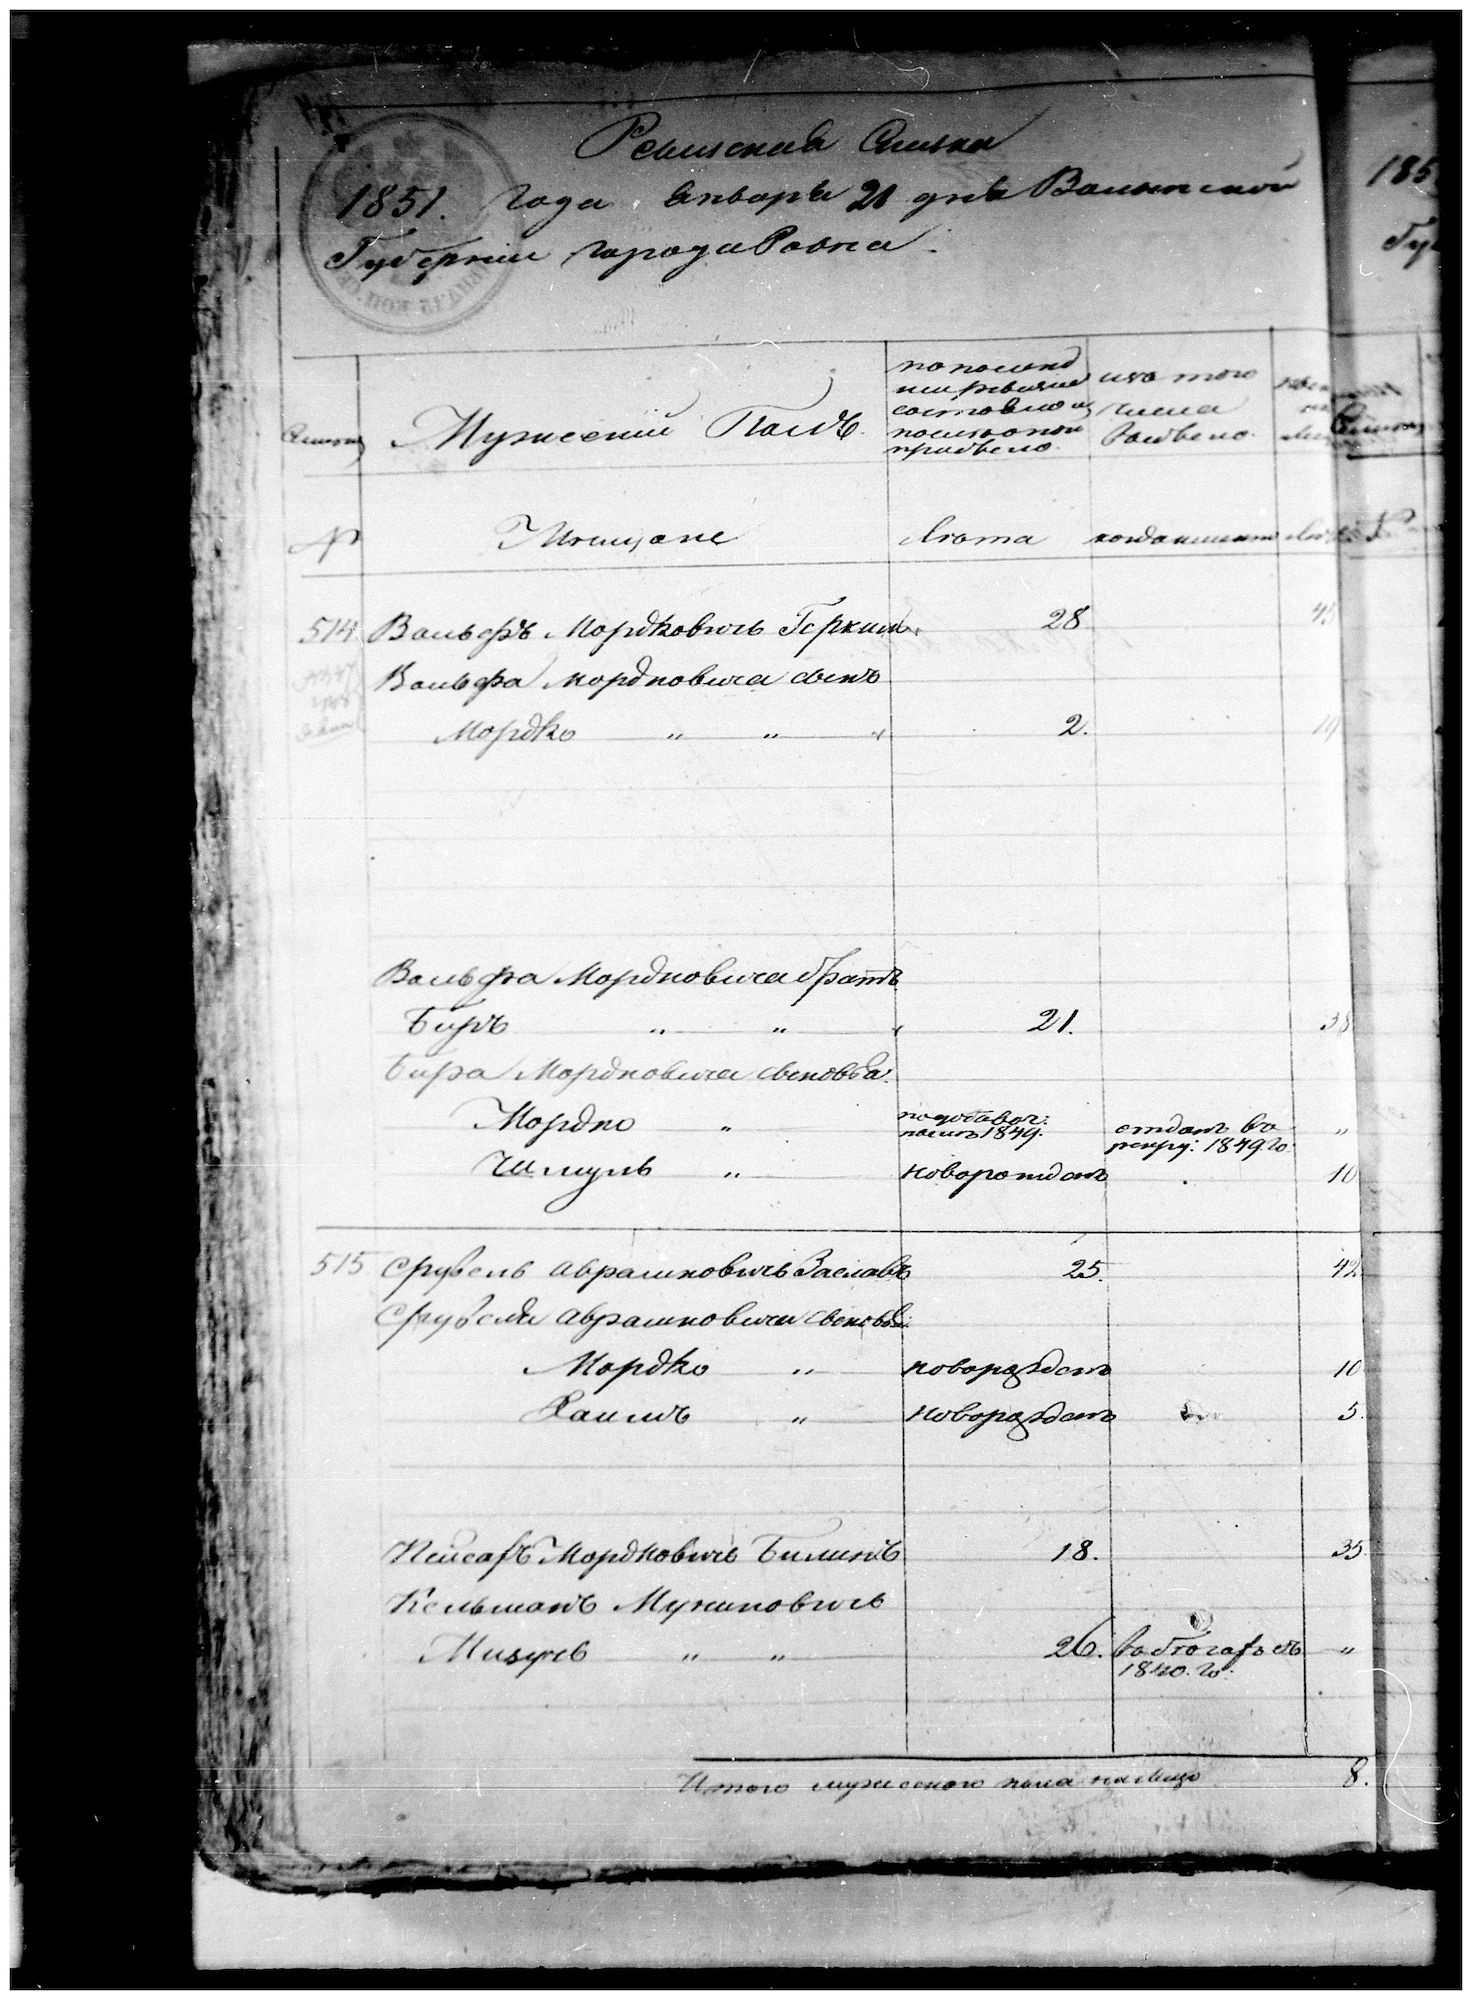 Ревизская Сказка
1851. Года Января 21 дня Волынской
Губернии города Ровна.
Мужеский Полъ.
по последней ревизіи состояло и после оной прибыло
изъ того числа выбыло
№
Мещане
Лета
когда именно
514 Вольфъ Мордковичь Геркши 28 45
Вольфа Мордковича сынъ
Мордко " " 2. 19
Вольфа Мордковича братъ
Биръ " " 21. 38
Бира Мордковича сыновья.
Мордко " 1849. отданъ въ рекру: 1849. го. "
Шмуль " новорожденъ 10
515 Срулель Аврашковичь Заславъ 25. 42
Срулеля Аврашковича сыновья:
Мордко " новорожденъ 10
Хаимъ " новорожденъ 5.
Пейсахъ Мордковичь Билинъ 18. 35.
Кельманъ Муниковичь
Мизучъ " " 26. въ бегахъ съ 1840. го. "
Итого мужескаго пола налицо 8.
185
Гу